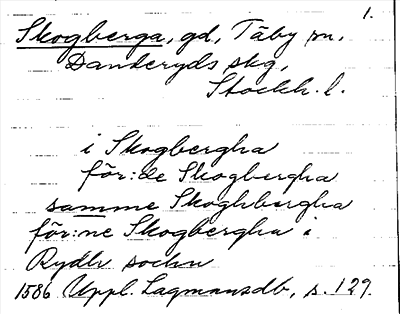 1.
Skogberga, gd, Täby sn,
Danderyds skg,
Stockh. l.
i Skogbergha
för:de Skogbergha
samme Skoghbergha
för:ne Skogbergha i
Rydh sochn
1586 Uppl. Lagmansdb, s. 129.